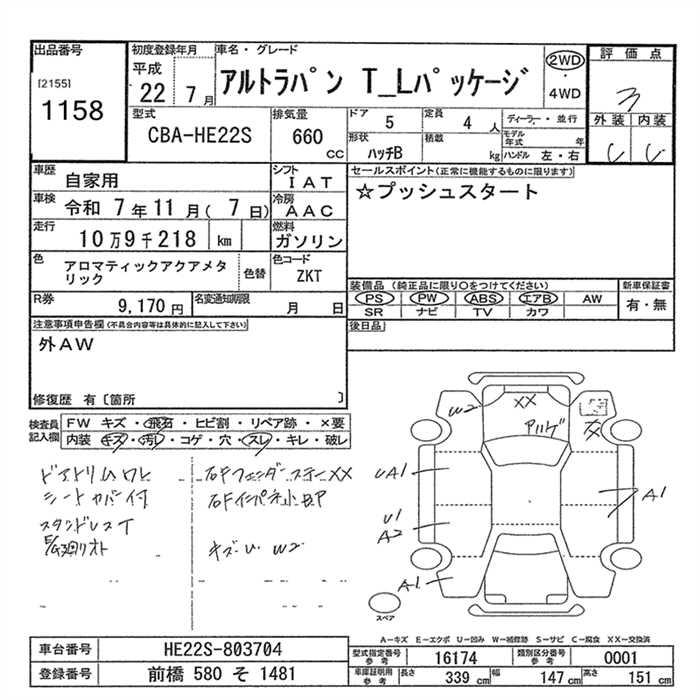 出品番号
[2155]
1158
初度登録年月
平成
22 7月
車名・グレード
アルトラパン T_Lパッケージ
2WD
・
4WD
評価点
3
外装 内装
型式
CBA-HE22S
排気量
660
cc
ドア 5
定員 4 人
ディーラー・並行
形状 ハッチB
積載 kg
モデル年式 年
ハンドル 左・右
車歴 自家用
シフト IAT
セールスポイント(正常に機能するものに限ります)
☆プッシュスタート
車検 令和 7年11月(7日)
冷房 AAC
走行 10万9千218 km
燃料 ガソリン
色 アロマティックアクアメタリック
色替
色コード ZKT
装備品 (純正品に限り○をつけてください)
新車保証書
PS PW ABS エアB AW
有・無
SR ナビ TV カワ
R券 9,170円
名変通知期限 月 日
後日品
注意事項申告欄(不具合内容等は具体的に記入して下さい)
外AW
修復歴 有〔箇所 〕
検査員記入欄
FW キズ・飛石・ヒビ割・リペア跡・×要
内装 キズ・汚レ・コゲ・穴・スレ・キレ・破レ
シートカバー付
右Fフェンダーステー XX
右Fインパネ小BP
キズ・U W2
W2
XX
UA1
U1
A2
A1
A1
スペア
A-キズ E-エクボ U-凹み W-補修跡 S-サビ C-腐食 XX-交換済
車台番号 HE22S-803704
登録番号 前橋 580 そ 1481
型式指定番号 参考 16174
類別区分番号 参考 0001
車庫証明用 参考 長さ 339 cm 幅 147 cm 高さ 151 cm